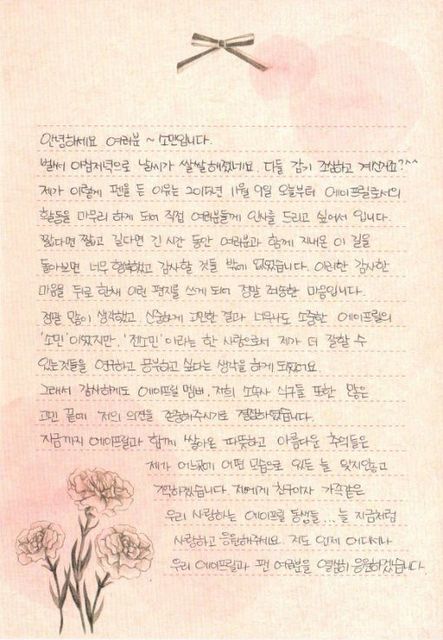 안녕하세요 여러분 ~ 소민입니다.
벌써 아침저녁으로 날씨가 쌀쌀해졌네요. 다들 감기 조심하고 계신거죠?^^
제가 이렇게 펜을 든 이유는 2015년 11월 9일 오늘부터 에이프릴로서의
활동을 마무리 하게 되어 직접 여러분들께 인사를 드리고 싶어서 입니다.
짧다면 짧고 길다면 긴 시간 동안 여러분과 함께 지내온 이 길을
돌아보면 너무 행복했고 감사할 것들 밖에 없었습니다. 이러한 감사한
마음을 뒤로 한채 이런 편지를 쓰게 되어 정말 죄송한 마음입니다.
정말 많이 생각했고, 신중하게 고민한 결과 너무나도 소중한 에이프릴의
'소민'이였지만, '전소민'이라는 한 사람으로서 제가 더 잘할 수
있는것들을 연구하고 공부하고 싶다는 생각을 하게 되었어요.
그래서 감사하게도 에이프릴 멤버, 저희 소속사 식구들 또한 많은
고민 끝에 저의 의견을 존중해주시기로 결정하셨습니다.
지금까지 에이프릴과 함께 쌓아온 따뜻하고 아름다운 추억들은
제가 어느곳에 어떤 모습으로 있든 늘 잊지않고
기억하겠습니다. 저에게 친구이자 가족같은
우리 사랑하는 에이프릴 동생들... 늘 지금처럼
사랑하고 응원해주세요. 저도 언제 어디에나
우리 에이프릴과 팬 여러분을 열심히 응원하겠습니다.